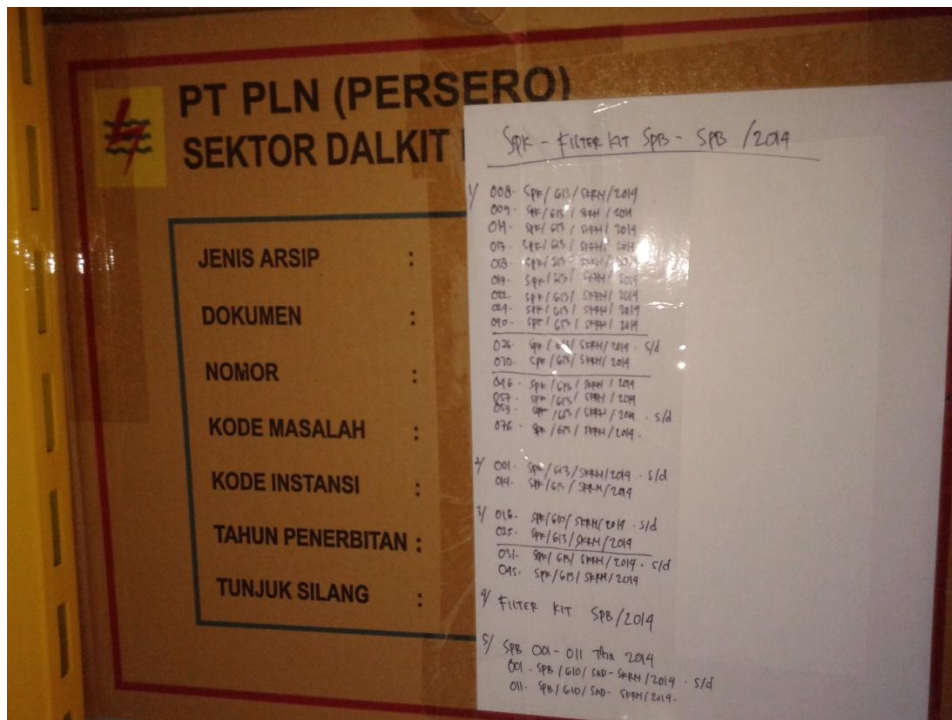 PT PLN (PERSERO)
SEKTOR DALKIT
JENIS ARSIP :
DOKUMEN :
NOMOR :
KODE MASALAH :
KODE INSTANSI :
TAHUN PENERBITAN :
TUNJUK SILANG :
SPK - FILTER KIT SPB - SPB /2014
1/ 008. SPK/613/SKRH/2014
009. SPK/613/SKRH/2014
014. SPK/613/SKRH/2014
017. SPK/613/SKRH/2014
018. SPK/613/SKRH/2014
019. SPK/613/SKRH/2014
022. SPK/613/SKRH/2014
029. SPK/613/SKRH/2014
040. SPK/613/SKRH/2014
026. SPK/613/SKRH/2014 . s/d
030. SPK/613/SKRH/2014
046. SPK/613/SKRH/2014
057. SPK/613/SKRH/2014
059. SPK/613/SKRH/2014 . s/d
076. SPK/613/SKRH/2014.
2/ 001. SPK/613/SKRH/2014 . s/d
014. SPK/613/SKRH/2014
3/ 016. SPK/613/SKRH/2014 . s/d
025. SPK/613/SKRH/2014
031. SPK/613/SKRH/2014 . s/d
045. SPK/613/SKRH/2014
4/ FILTER KIT SPB/2014
5/ SPB 001 - 011 THN 2014
001. SPB/610/SAD-SKRH/2014 . s/d
011. SPB/610/SAD-SKRH/2014.